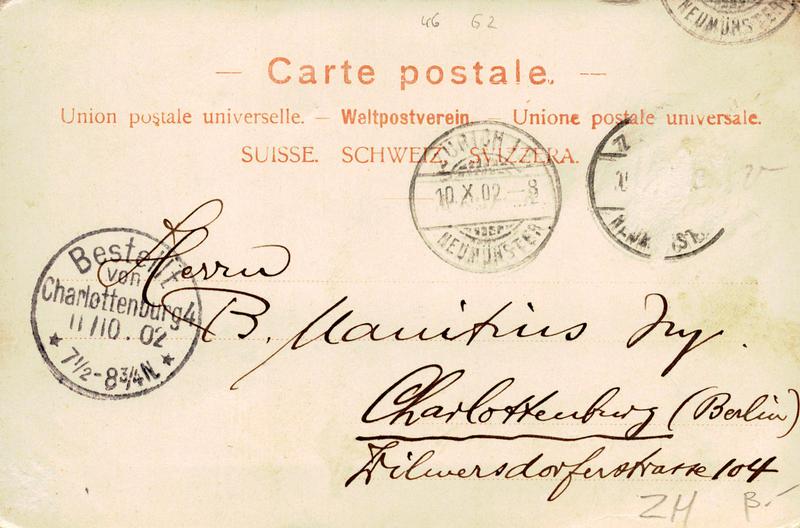 46 62
NEUMÜNSTER
— Carte postale. —
Union postale universelle. — Weltpostverein. — Unione postale universale.
SUISSE. SCHWEIZ. SVIZZERA.
ZÜRICH
10.X.02.-8
NEUMÜNSTER
Bestellt
von
Charlottenburg 4
11/10.02
7½-8¾N.
Herrn
B. Mauritius Ing.
Charlottenburg (Berlin)
Wilmersdorferstrasse 104
ZH B.-